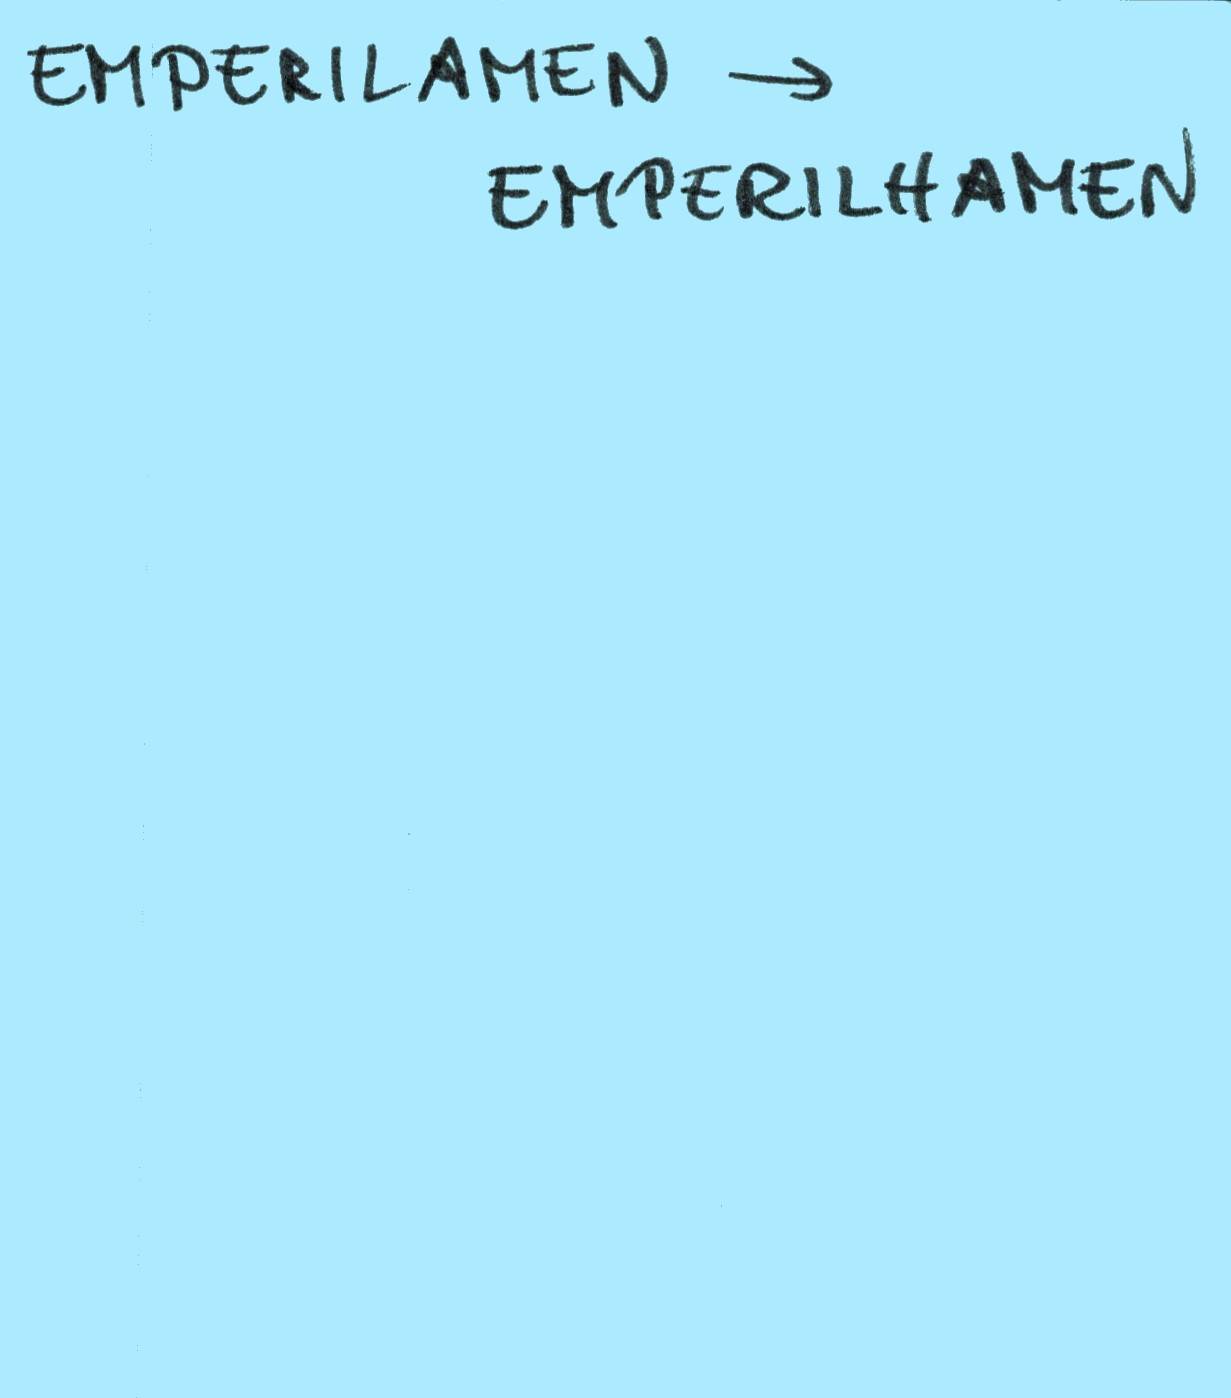 EMPERILAMEN →
EMPERILHAMEN